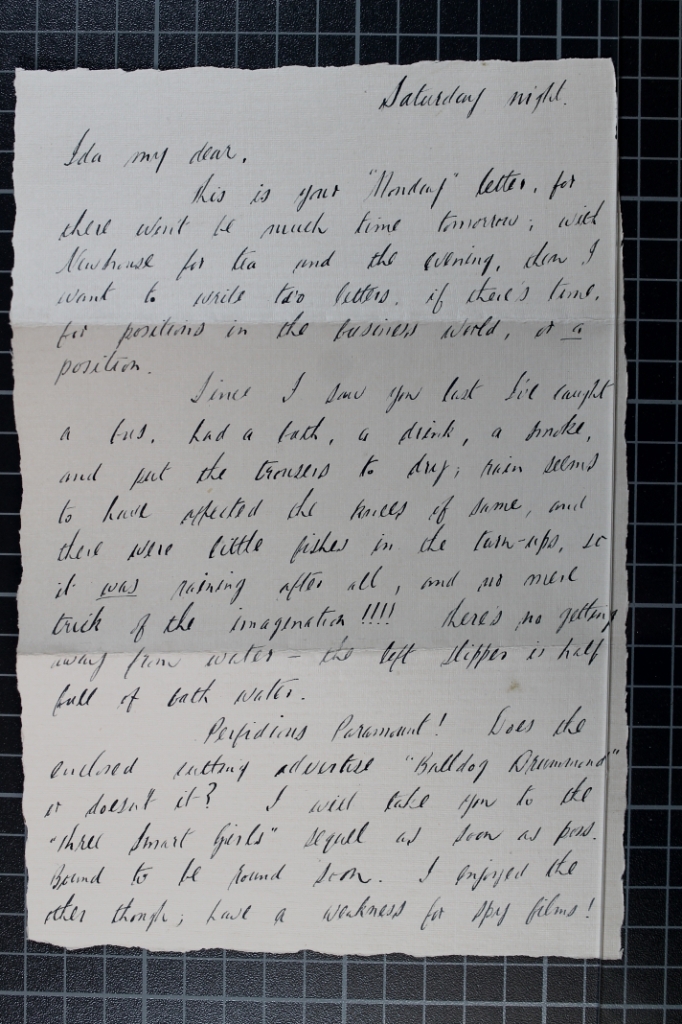 Saturday night.
Ida my dear,
This is your "Monday" letter, for
there won't be much time tomorrow; with
Newhouse for tea and the evening, then I
want to write two letters, if there's time,
for positions in the business world, or a
position.
Since I saw you last I've caught
a bus, had a bath, a drink, a smoke,
and put the trousers to dry; rain seems
to have affected the knees of same, and
there were little fishes in the turn-ups, so
it was raining after all, and no mere
trick of the imagination!!!! There's no getting
away from water – the left slipper is half
full of bath water.
Perfidious Paramount! Does the
enclosed cutting advertise "Bulldog Drummond"
or doesn't it? I will take you to the
"Three Smart Girls" sequel as soon as poss.
Bound to be round soon. I enjoyed the
other though; have a weakness for spy films!